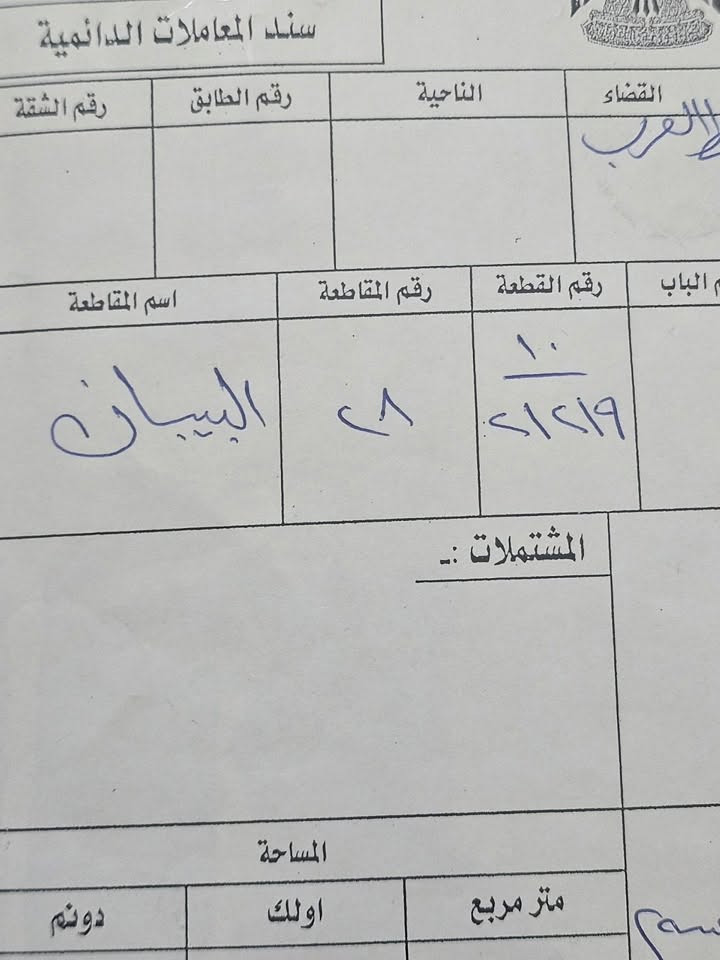 سند المعاملات الدائمية
القضاء الناحية رقم الطابق رقم الشقة
العرب
الباب رقم القطعة رقم المقاطعة اسم المقاطعة
١٠
٢١٢١٩ ٢٨ البيبان
المشتملات :ـ
المساحة
متر مربع اولك دونم